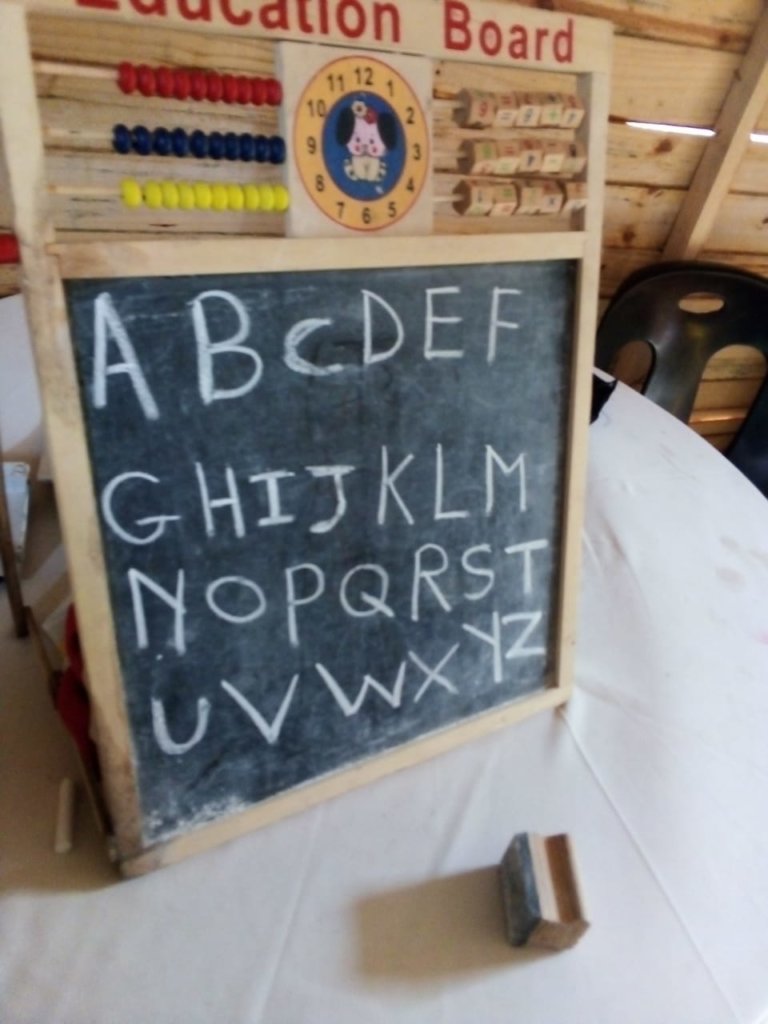 Education Board
12
1
2
3
4
5
6
7
8
9
10
11
A B C D E F
G H I J K L M
N O P Q R S T
U V W X Y Z